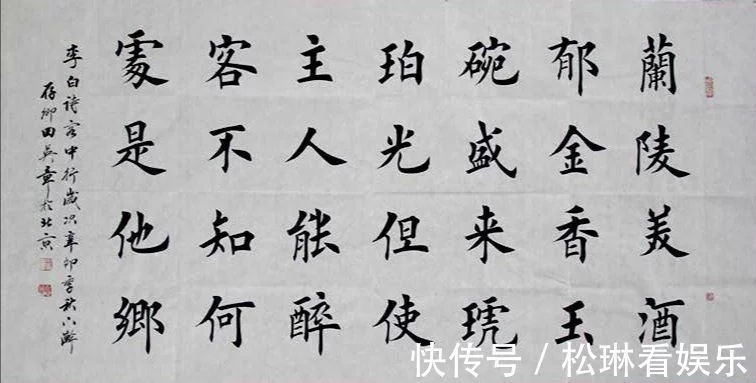 蘭陵美酒
郁金香玉
碗盛来琥
珀光但使
主人能醉
客不知何
處是他鄉
李白詩客中行歲次辛卯季秋下澣
存卿田英章於北京
快传号 / 松琳看娱乐